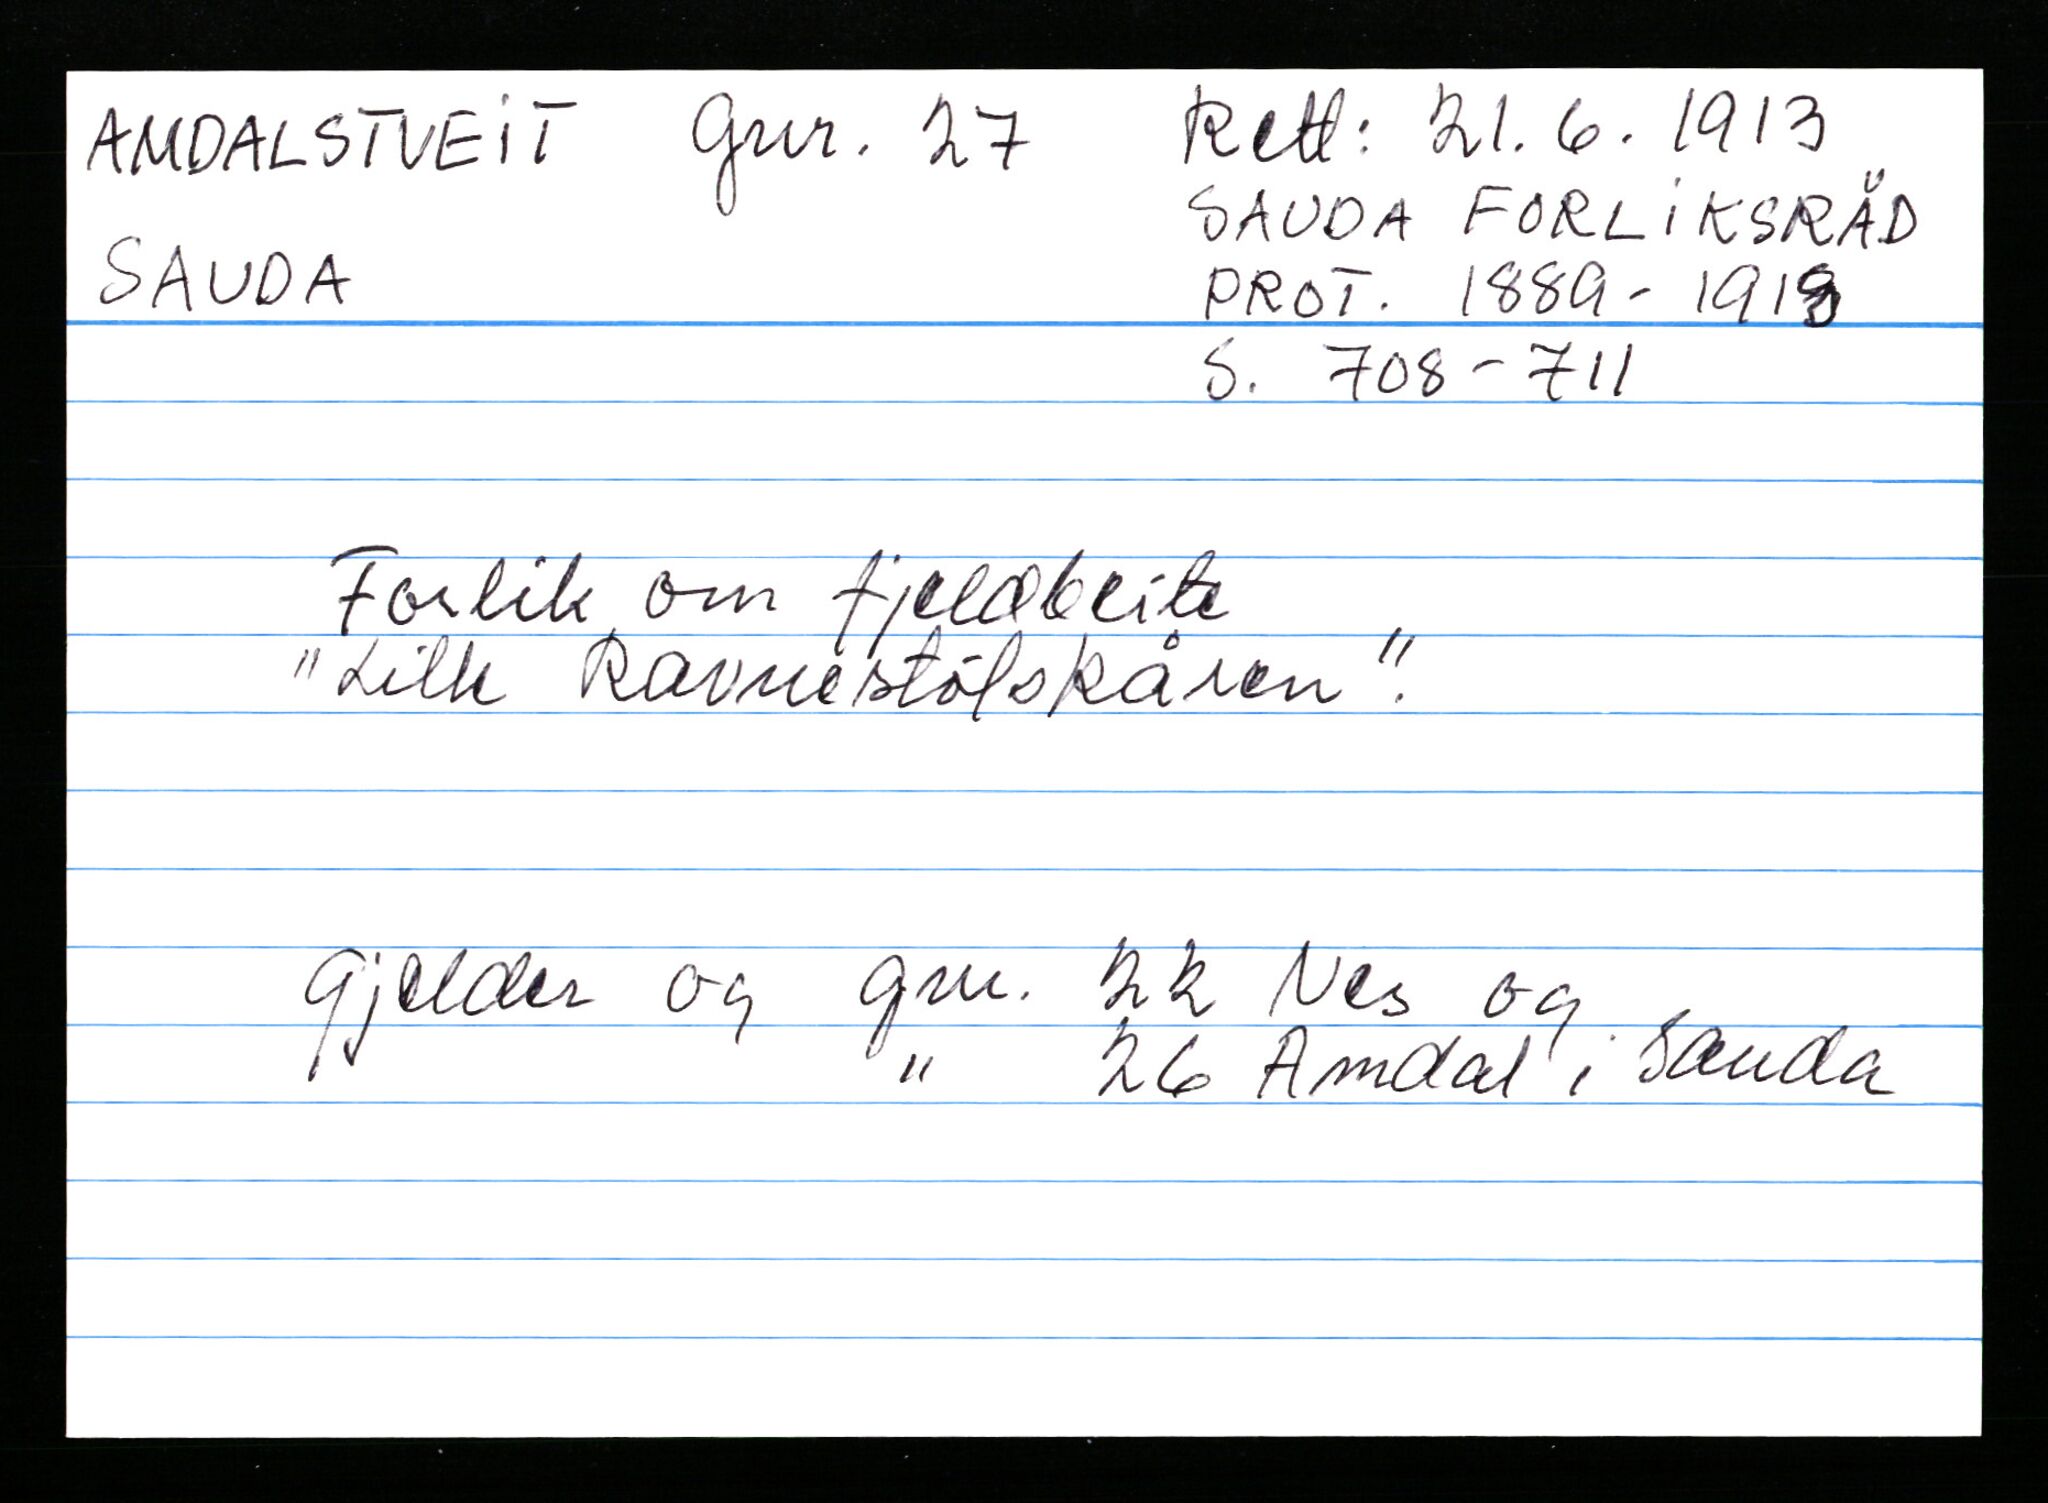 AMDALSTVEIT Gnr. 27 Rett: 21.6.1913
SAUDA FORLIKSRÅD
SAUDA PROT. 1889-1913
S. 708-711
Forlik om fjeldbeite
"Lille Ravnestölskåren".
Gjelder og gnr. 22 Nes og
" 26 Amdal i Sauda